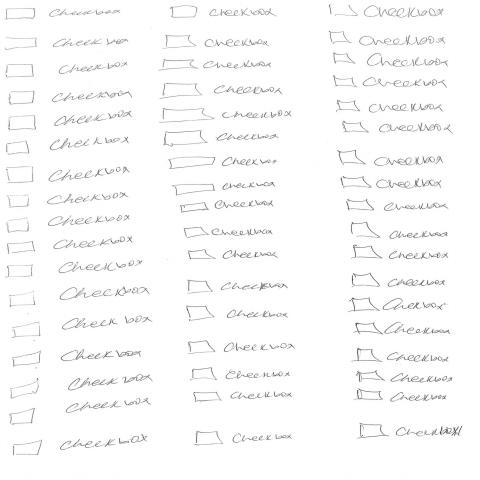 Checkbox
Check box
Checkbox
Checkbox
Checkbox
Checkbox
Checkbox
Checkbox
Checkbox
Checkbox
Checkbox
Checkbox
Check box
Checkbox
Check box
Check box
Checkbox
Checkbox
Checkbox
Checkbox
Checkbox
Checkbox
Checkbox
Checkbox
checkbox
Checkbox
Checkbox
Checkbox
Checkbox
Checkbox
Checkbox
Checkbox
Checkbox
Checkbox
Checkbox
Checkbox
Checkbox
Checkbox
Checkbox
Checkbox
Checkbox
Checkbox
Checkbox
Checkbox
Checkbox
Checkbox
Checkbox
Checkbox
Checkbox
Checkbox
Checkbox
Checkbox